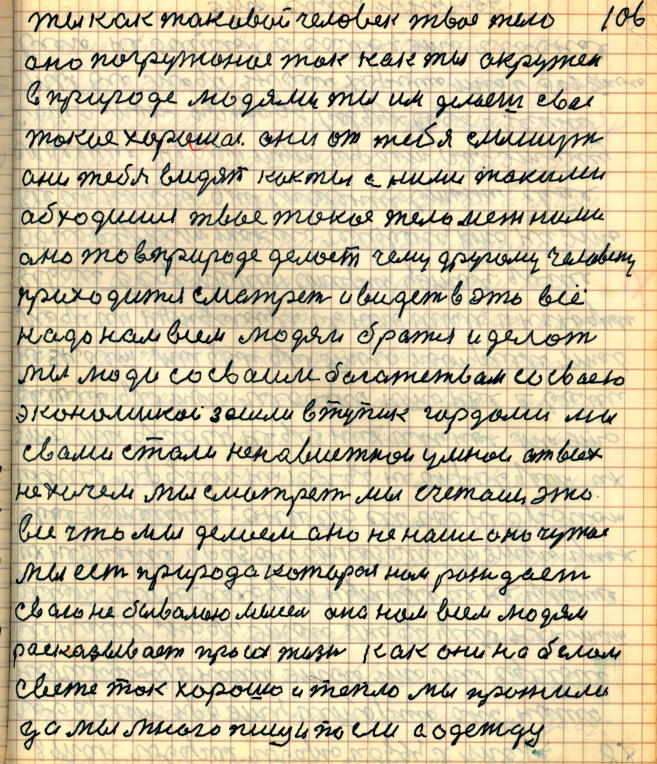 ты как таковой человек твое тело 106
оно погружоное так как ты окружен
в природе людями ты им делаеш свае
такое хорошае. они от тебя слышут
они тебя видят как ты с ними такими
абходишся твое такое тело меж ними
ано то в природе делает чему другому человеку
приходится смотрет и видет в это всё
надо нам всем людям братся и делат
мы люди со сваим богатством со сваею
экономикой зашли в тупик гордами мы
свами стали ненавистнои умнои от всех
не хочем мы смотрет мы счетаем, это
все что мы делаем ано не наше оно чужое
мы ест природа которая нам рождает
сваю не бывалою она нам всем людям
расказывает про их жизн как они на белом
свете так хорошо и тепло мы прожили
за мы много пищи по сли а одежду